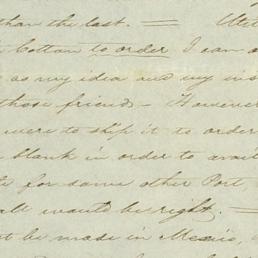 than the last. =
Cotton to order I can
as my idea and my ins
those friends - However
were to ship it to order
blank in order to avail
for some other Port,
all would be right. =
t be made in Mexico,